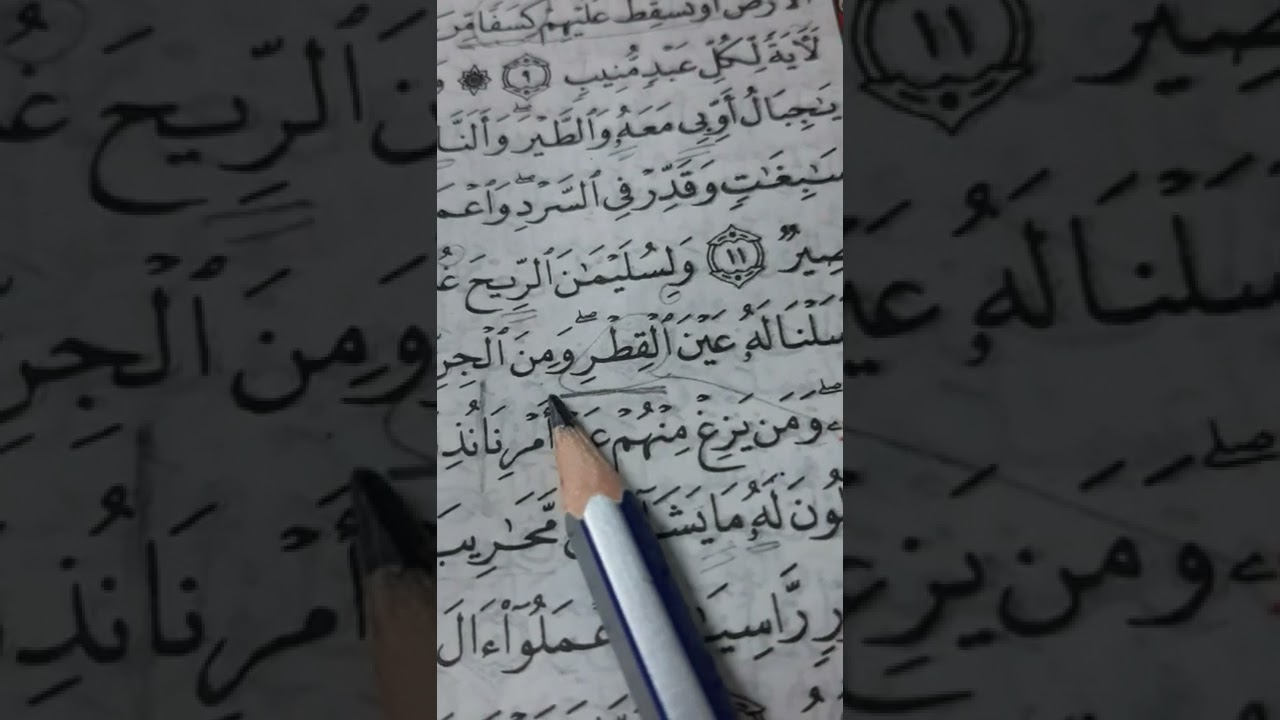 الْأَرْضَ أَوْ نُسْقِطْ عَلَيْهِمْ كِسَفًا مِّنَ
لَأٓيَةً لِّكُلِّ عَبْدٍ مُّنِيبٍ ٩ ۞
يَٰجِبَالُ أَوِّبِى مَعَهُۥ وَٱلطَّيْرَۖ وَأَلَنَّا
سَٰبِغَٰتٍ وَقَدِّرْ فِى ٱلسَّرْدِۖ وَٱعْمَ
صِيرٌ ١١ وَلِسُلَيْمَٰنَ ٱلرِّيحَ غُ
سَلْنَا لَهُۥ عَيْنَ ٱلْقِطْرِۖ وَمِنَ ٱلْجِنِّ
وَمَن يَزِغْ مِنْهُمْ عَنْ أَمْرِنَا نُذِ
لُونَ لَهُۥ مَا يَشَآ مَّحَٰرِيبَ
رٍ رَّاسِيَٰ ٱعْمَلُوٓا۟ ءَالَ